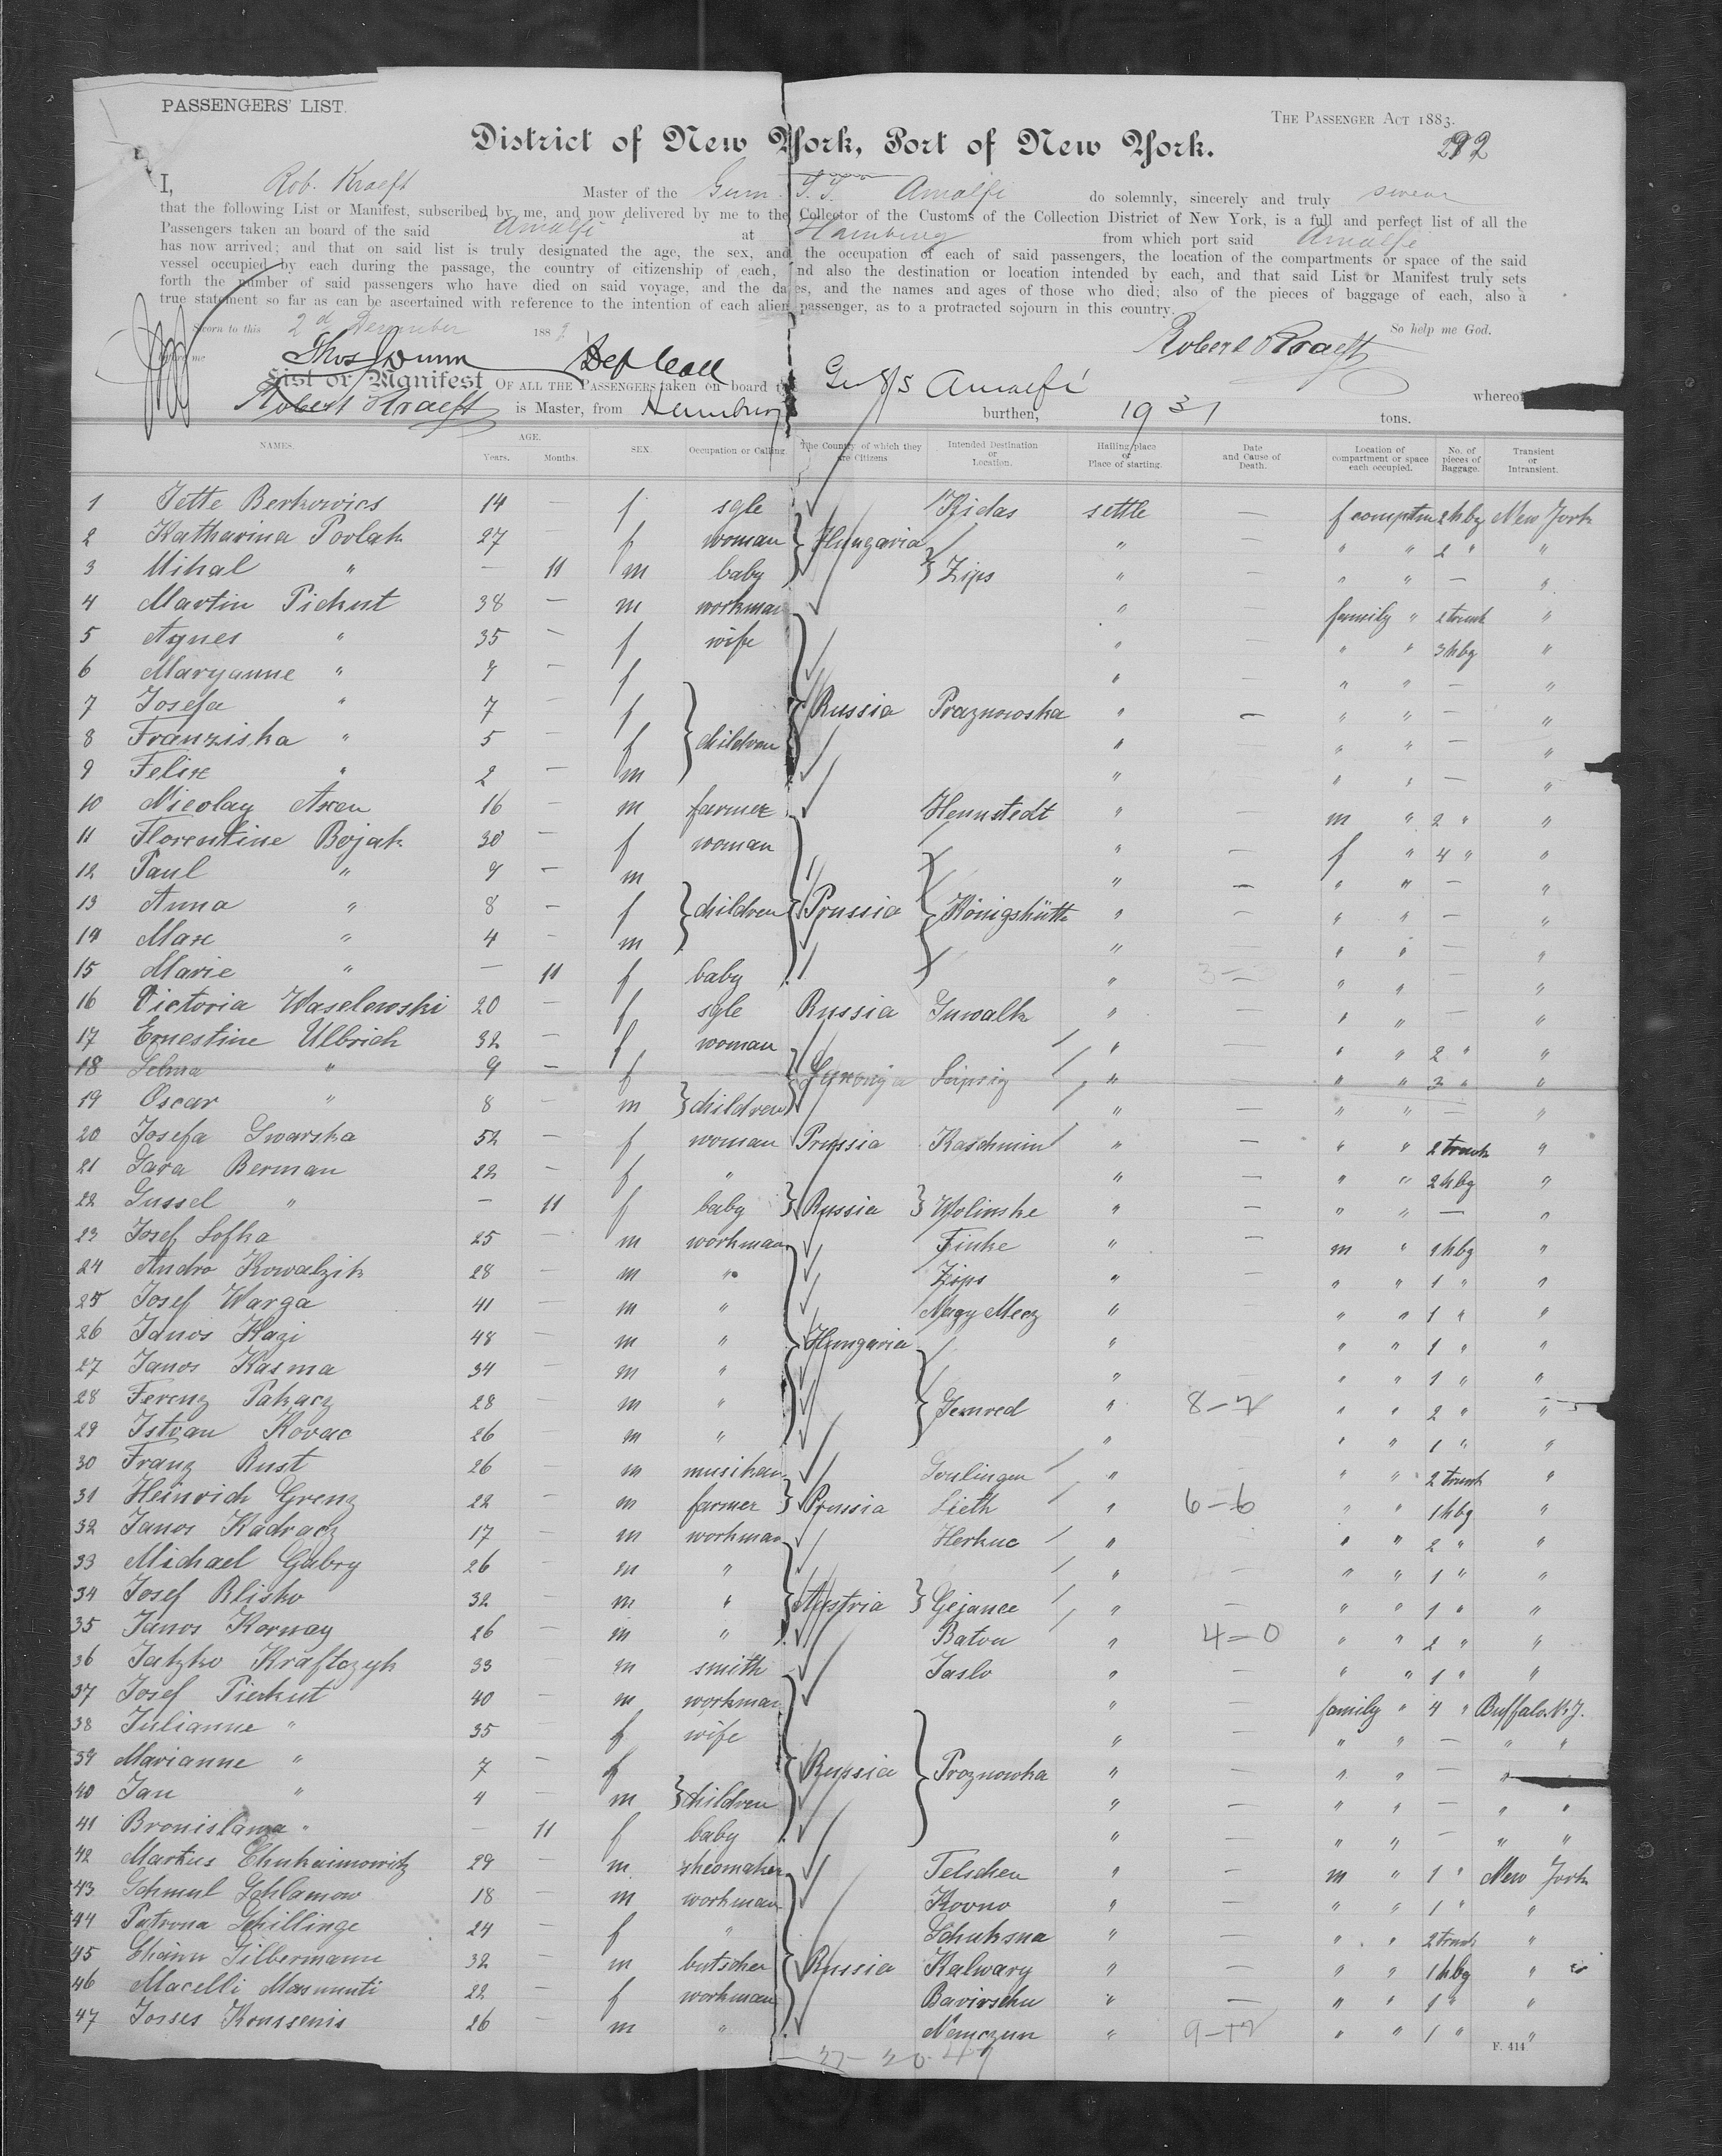 PASSENGERS' LIST.
THE PASSENGER ACT 1883.
District of New York, Port of New York.
292
I, Rob. Kraeft Master of the Germ. S.S. Amalfi do solemnly, sincerely and truly swear
that the following List or Manifest, subscribed by me, and now delivered by me to the Collector of the Customs of the Collection District of New York, is a full and perfect list of all the
Passengers taken an board of the said Amalfi at Hamburg from which port said Amalfi
has now arrived; and that on said list is truly designated the age, the sex, and the occupation of each of said passengers, the location of the compartments or space of the said
vessel occupied by each during the passage, the country of citizenship of each, and also the destination or location intended by each, and that said List or Manifest truly sets
forth the number of said passengers who have died on said voyage, and the dates, and the names and ages of those who died; also of the pieces of baggage of each, also a
true statement so far as can be ascertained with reference to the intention of each alien passenger, as to a protracted sojourn in this country.
Sworn to this 2d December 188 So help me God.
before me Thos Dunn Dep Coll Robert Kraeft
List or Manifest OF ALL THE PASSENGERS taken on board the Ger S/S Amalfi whereof
Robert Kraeft is Master, from Hamburg burthen, 1931 tons.
NAMES. AGE. Years. Months. SEX. Occupation or Calling. The Country of which they are Citizens Intended Destination or Location. Hailing place or Place of starting. Date and Cause of Death. Location of compartment or space each occupied. No. of pieces of Baggage. Transient or Intransient.
1 Jette Berkowics 14 — f sgle Kidas settle — f comptm 2 hbg New York
2 Katharina Povlak 27 f woman Hungaria " — " " 2 " "
3 Mihal " — 11 m baby Zips " — " " — "
4 Martin Pickut 38 — m workman " — family " 2 trunk "
5 Agnes " 35 — f wife " — " " 3 hbg "
6 Maryanne " 9 — f " — " " — "
7 Josefa " 7 — f Russia Praznowska " — " " — "
8 Franziska " 5 — f children " — " " — "
9 Felix " 2 — m " — " " — "
10 Nicolay Axen 16 — m farmer Hennstedt " — m " 2 " "
11 Florentine Bojak 30 — f woman " — f " 4 " "
12 Paul " 9 — m " — " " — "
13 Anna " 8 — f children Prussia Königshütte " — " " — "
14 Max " 4 — m " — " " — "
15 Marie " — 11 f baby " — " " — "
16 Victoria Waselewski 20 — f sgle Russia Suwalk " — " " — "
17 Ernestine Ulbrich 32 — f woman " — " " 2 " "
18 Selma " 9 — f Leipzig " " " 2 " "
19 Oscar " 8 — m children " — " " — "
20 Josefa Swarska 52 — f woman Prussia Kaschmin " — " " 2 trunk "
21 Sara Berman 22 — f " " — " " 2 hbg "
22 Gussel " — 11 f baby Russia Wolinske " — " " — "
23 Josef Sofka 25 — m workman Finke " — m " 1 hbg "
24 Andro Kowalzik 28 — m " Zips " — " " 1 " "
25 Josef Warga 41 — m " Nagy Mecz " " " 1 " "
26 Janos Kazi 48 — m " Hungaria " " " 1 " "
27 Janos Kasma 34 — m " " — " " 1 " "
28 Ferenz Pakacz 28 — m " Semred " 8—7 " " 2 " "
29 Istvan Kovac 26 — m " " " " 1 " "
30 Franz Rust 26 — m musikan " " " 2 trunk "
31 Heinrich Grenz 22 — m farmer Prussia Lieth " 6—6 " " 1 hbg "
32 Janos Kadracz 17 — m workman Herkuc " " " 2 " "
33 Michael Gabry 26 — m " " — " " 1 " "
34 Josef Blisko 32 — m " Austria Gejance " — " " 1 " "
35 Janos Kornay 26 — m " Baton " 4—0 " " 2 " "
36 Jatzko Kraftczyk 33 — m smith Jaslo " — " " 1 " "
37 Josef Pierkut 40 — m workman " — family " 4 " Buffalo. N.Y.
38 Julianne " 35 — f wife " — " " — " "
39 Marianne " 7 — f Russia Proznowka " — " " — "
40 Jan " 4 — m children " — " " — " "
41 Bronislawa " — 11 f baby " — " " — " "
42 Markus Chuhaimowitz 29 — m sheomaker Telschen " — m " 1 " New York
43 Schmul Schlamow 18 — m workman Kovno " — " " 1 " "
44 Patrona Schillinge 24 — f " Schuksna " — " " 2 trunk "
45 Chaim Silbermann 32 — m butscher Russia Kalwary " — " " 1 hbg "
46 Macelli Masmunti 22 — f workman Bavirschu " — " " 1 " "
47 Josses Konssenis 26 — m " Nemczun " 9—12 " " 1 " "
F. 414
27—20 47